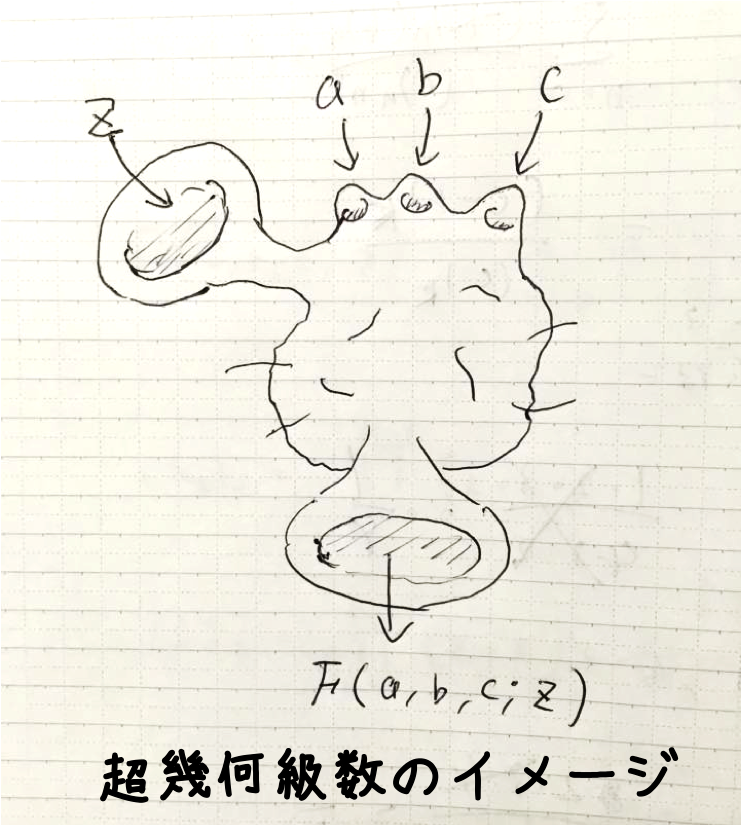 a b c
z
F(a,b,c;z)
超幾何級数のイメージ